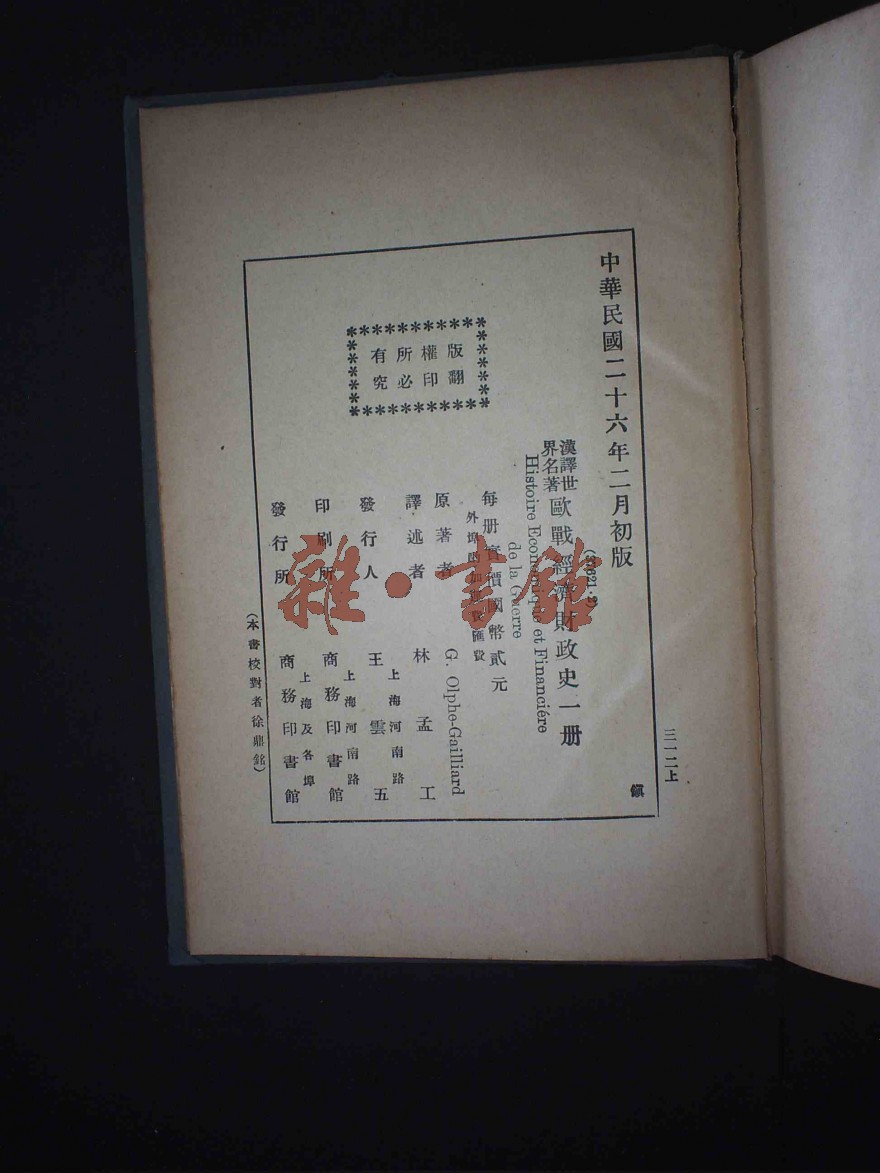 中華民國二十六年二月初版
三一二上
鎭
漢譯世界名著
歐戰經濟財政史一册
Histoire Economique et Financiére
de la Guerre
每册實價國幣貳元
外埠酌加運費匯費
原著者 G. Olphe-Gailliard
譯述者 林孟工
發行人 王雲五
上海河南路
印刷所 商務印書館
上海河南路
發行所 商務印書館
上海及各埠
版權所有
翻印必究
(本書校對者徐鼎銘)
雜·書館